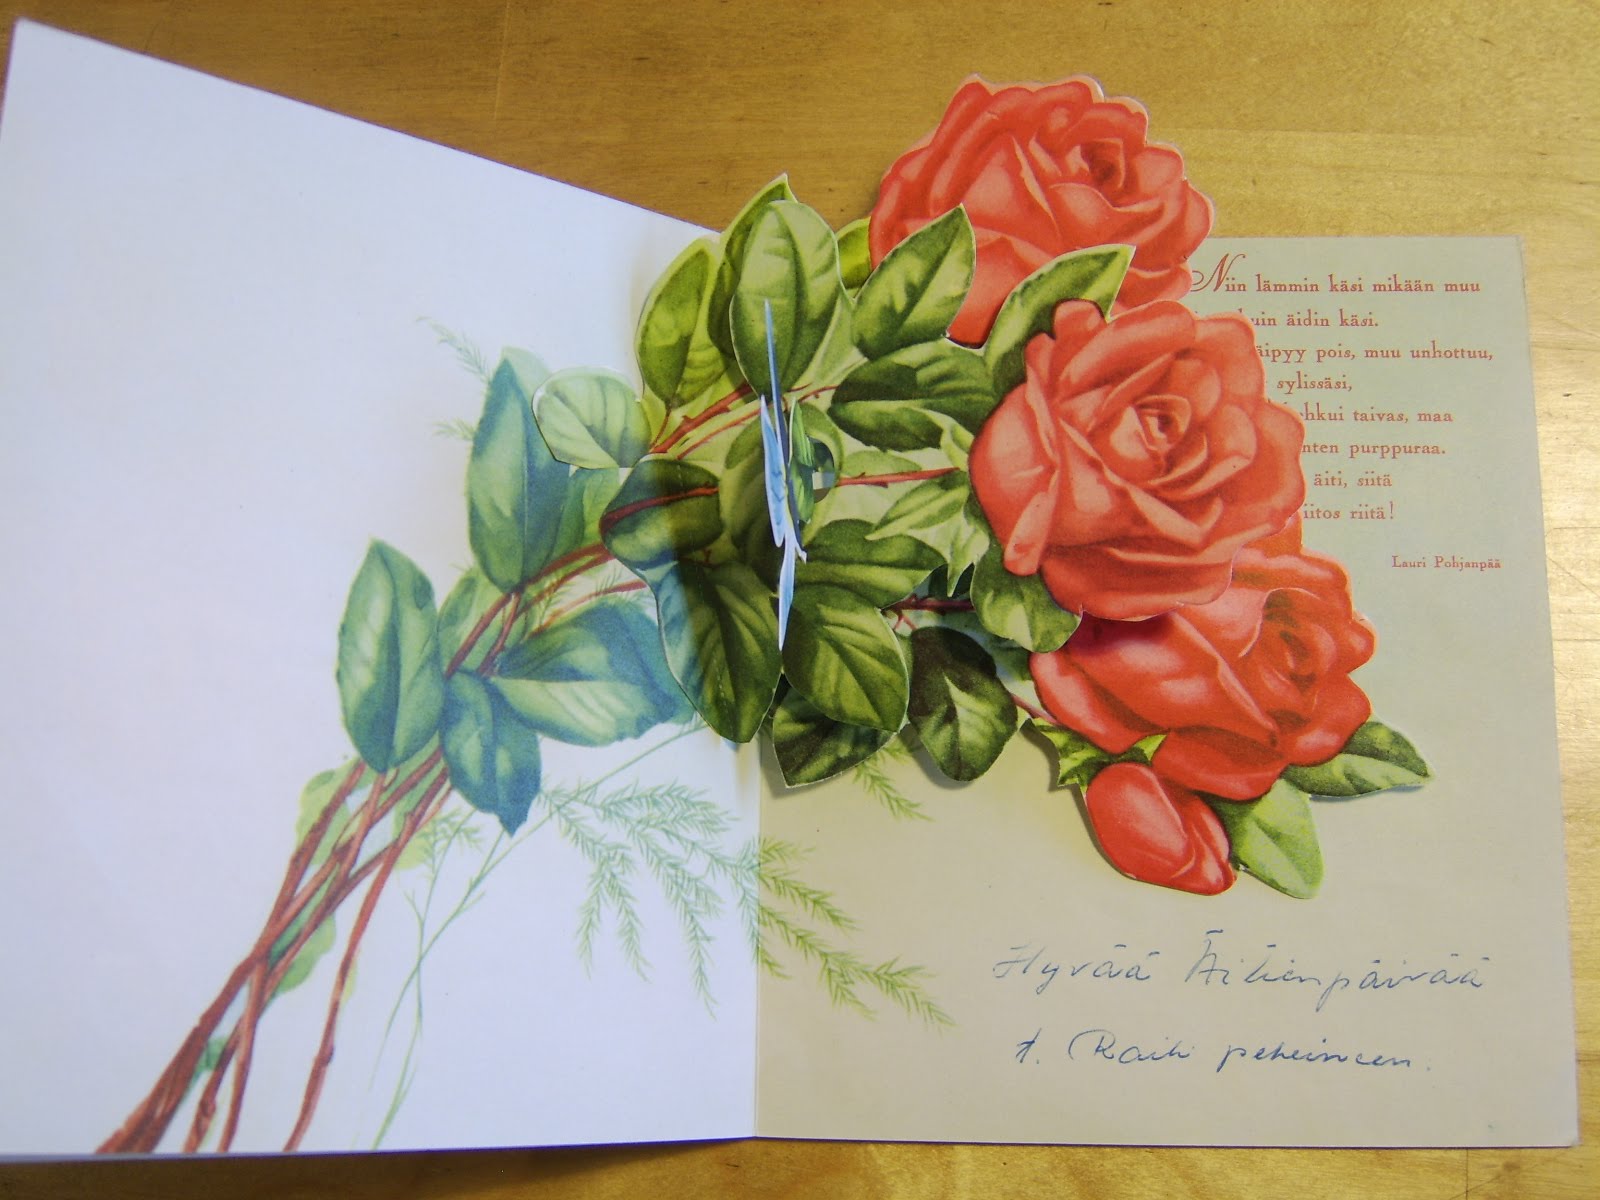 Niin lämmin käsi mikään muu
kuin äidin käsi.
pois, muu unhottuu,
sylissäsi,
taivas, maa
purppuraa.
äiti, siitä
riitä!
Lauri Pohjanpää
Hyvää Äitienpäivää
t. Raili perheineen.